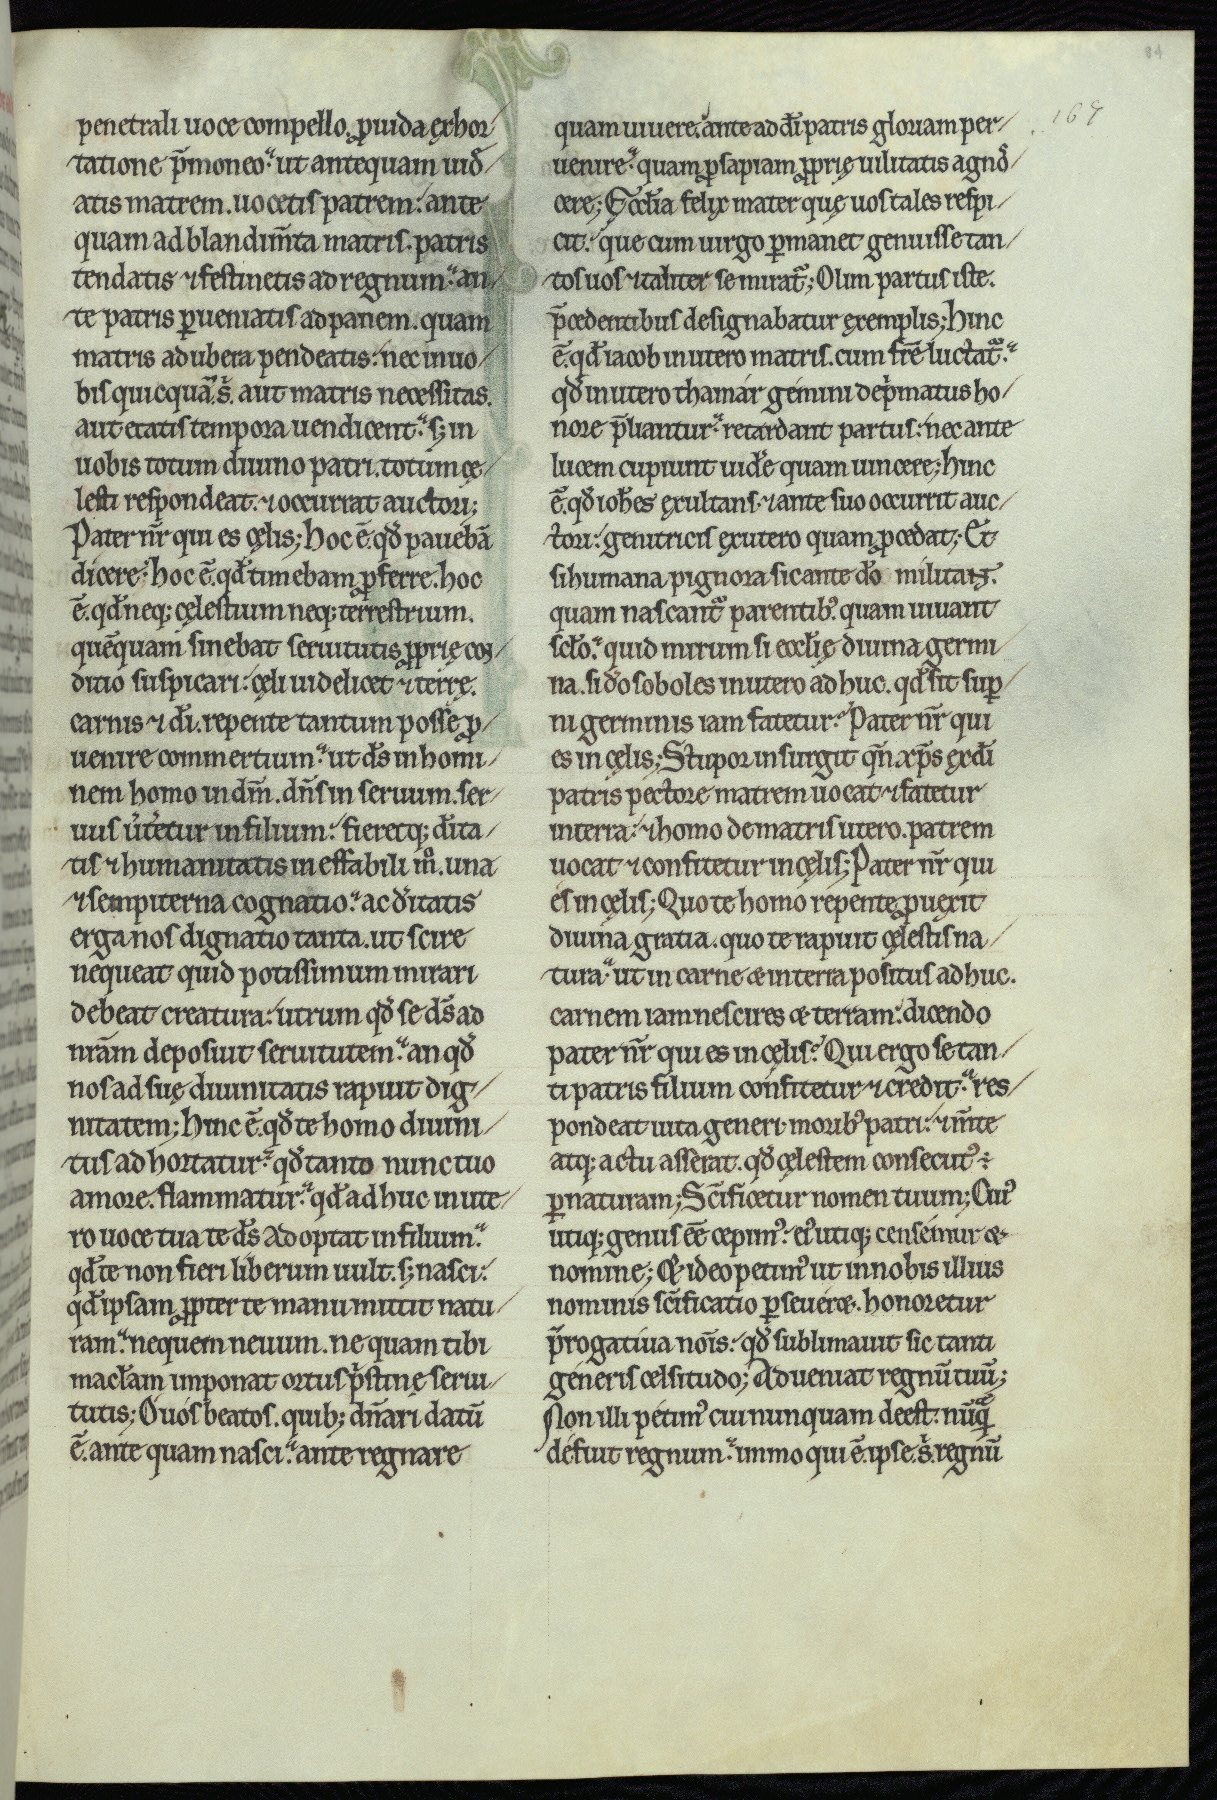 84
169
penetrali uoce compello. ꝓuida ęxhor
tatione p̄moneo. ut antequam uid̄
atis matrem. uocetis patrem: ante
quam ad blandim̄ta matris. patris
tendatis ⁊ festinetis ad regnum. an
te patris ꝑueniatis ad panem. quam
matris ad ubera pendeatis: nec in uo
bis quicquā. s̄. aut matris necessitas.
aut etatis tempora uendicent. s; in
uobis totum diuino patri. totum cę
lesti respondeat. ⁊ occurrat auctori;
Pater nr̄ qui es cęlis; hoc ē. qd̄ pauebā
dicere: hoc ē. qd̄ timebam ꝓferre. hoc
ē. qd̄ neq; cęlestium neq; terrestrium.
quēquam sinebat seruitutis ꝓprię con
ditio suspicari: cęli uidelicet ⁊ terrę.
carnis ⁊ dī. repente tantum posse ꝓ
uenire commertium. ut ds̄ in homi
nem homo in dm̄. dn̄s in seruum. ser
uus u̓tetur in filium: fieretq; dīta
tis ⁊ humanitatis ineffabili m̊. una
⁊ sempiterna cognatio. ac dīitatis
erga nos dignatio tanta. ut scire
nequeat quid potissimum mirari
debeat creatura: utrum qd̄ se ds̄ ad
nrām deposuit seruitutem. an qd̄
nos ad suę diuinitatis rapuit dig
nitatem; Hinc ē. qd̄ te homo diuini
tus adhortatur. qd̄ tanto nunc tuo
amore. flammatur. qd̄ adhuc in ute
ro uoce tua te ds̄ adoptat in filium.
qd̄ te non fieri liberum uult. s; nasci:
qd̄ ipsam ꝓpter te manumittit natu
ram. ne quem neuum. ne quam tibi
macl̄am imponat ortus p̄stinę serui
tutis; O uos beatos. quib; dn̄ari datū
ē. ante quam nasci. ante regnare
quam uiuere. ante ad dī patris gloriam per
uenire. quam ꝓsapiam ꝓprię uilitatis agnō
cere; Eccl̄ia felix mater quę uos tales respi
cit: que cum uirgo ꝑmanet genuisse tan
tos uos ⁊ taliter se mirat̄; Olim partus iste.
p̄cedentibus designabatur ęxemplis; hinc
ē. qd̄ iacob in utero matris. cum fr̄e luctat̄.
qd̄ in utero thamar gemini de p̄matus ho
nore p̄liantur. retardant partus: nec ante
lucem cupiunt uid̄e quam uincere; hinc
ē. qd̄ ioh̄es ęxultans. ⁊ ante suo occurrit auc
tori: genitricis ęx utero quam ꝓcedat; Et
si humana pignora sic ante dō militant.
quam nascant̄ parentib; quam uiuant
scl̄o. quid mirum si eccl̄ię diuina germi
na. si dō soboles in utero adhuc. qd̄ sit suꝑ
ni germinis iam fatetur? Pater nr̄ qui
es in cęlis; Stupor insurgit qn̄ xp̄s ęx dī
patris pectore matrem uocat ⁊ fatetur
in terra: ⁊ homo de matris utero. patrem
uocat ⁊ confitetur in cęlis; Pater nr̄ qui
es in cęlis; Quo te homo repente ꝓuęxit
diuina gratia. quo te rapuit cęlestis na
tura. ut in carne & in terra positus adhuc.
carnem iam nescires & terram: dicendo
pater nr̄ qui es in cęlis? Qui ergo se tan
ti patris filium confitetur ⁊ credit. res
pondeat uita generi. morib; patri: ⁊ m̄te
atq; actu asserat. qd̄ cęlestem consecut; ÷
ꝑ naturam; Scīficetur nomen tuum; Cui;
utiq; genus eē cepim;. ei; utiq; censemur &
nomine; & ideo petim; ut in nobis illius
nominis scīficatio ꝑseueret. honoretur
p̄rogatiua noīs: qd̄ sublimauit sic tanti
generis celsitudo; Adueniat regnū tuū;
Non illi petim; cui nunquam deest. nūquā
defuit regnum. immo qui ē. ipse. s̄. regnū